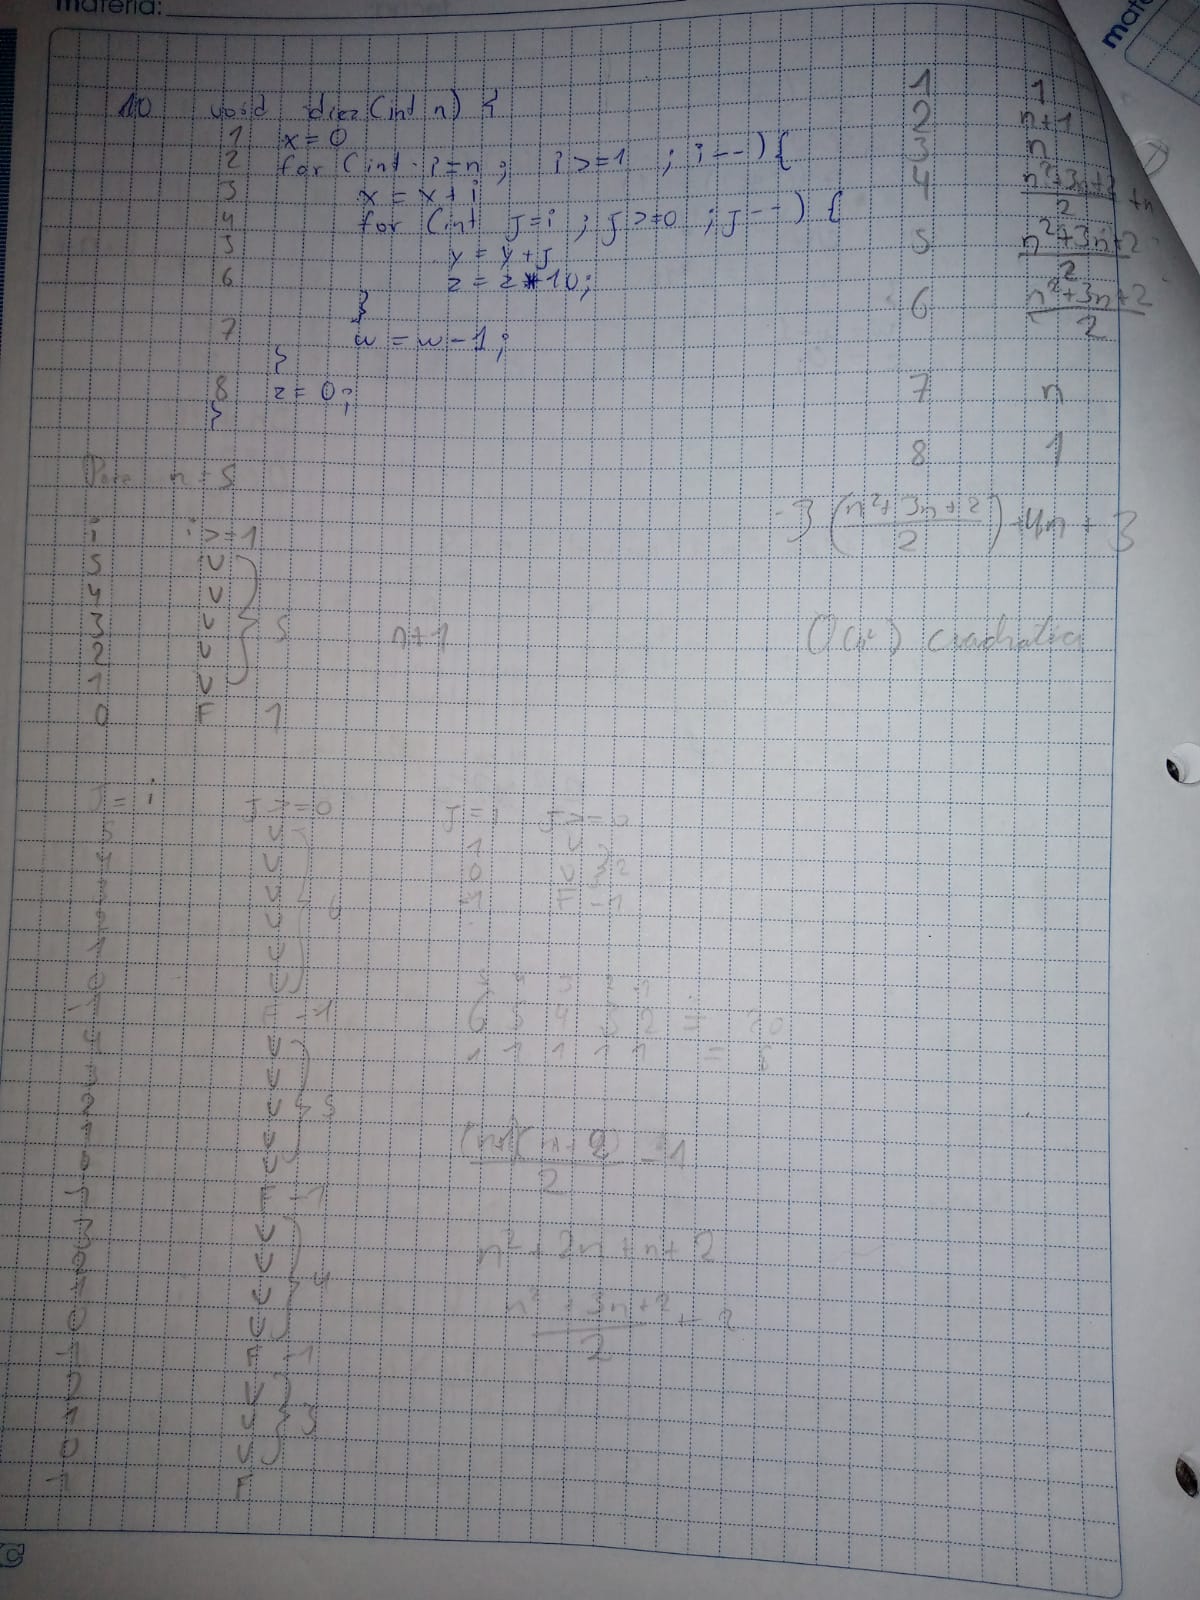 materia:
10 void diez (int n) {
1 x = 0
2 for (int i=n; i>=1 ; i--) {
3 x = x + i
4 for (int j=i ; j>=0 ; j--) {
5 y = y + j
6 z = z * 10;
}
7 w = w - 1;
}
8 z = 0;
}
1 1
2 n+1
3 n
4 n²+3n+2/2 + n
5 n²+3n+2/2
6 n²+3n+2/2
7 n
8 1
3(n²+3n+2/2) + 4n + 3
O(n²) cuadratica
Para n = 5
i i>=1
5 V
4 V
3 V 5 n+1
2 V
1 V
0 F 1
J = i J>=0
5 V
4 V
3 V 6
2 V
1 V
0 V
-1 F -1
4 V
3 V
2 V 5
1 V
0 V
-1 F -1
3 V
2 V
1 V 4
0 V
-1 F -1
2 V
1 V 3
0 V
-1 F
J=i J>=0
1 V
0 V 2
-1 F -1
5 4 3 2 1
6 5 4 3 2 = 20
1 1 1 1 1 = 5
(n+1)(n+2)/2 - 1
n² + 2n + n + 2
n² + 3n + 2/2